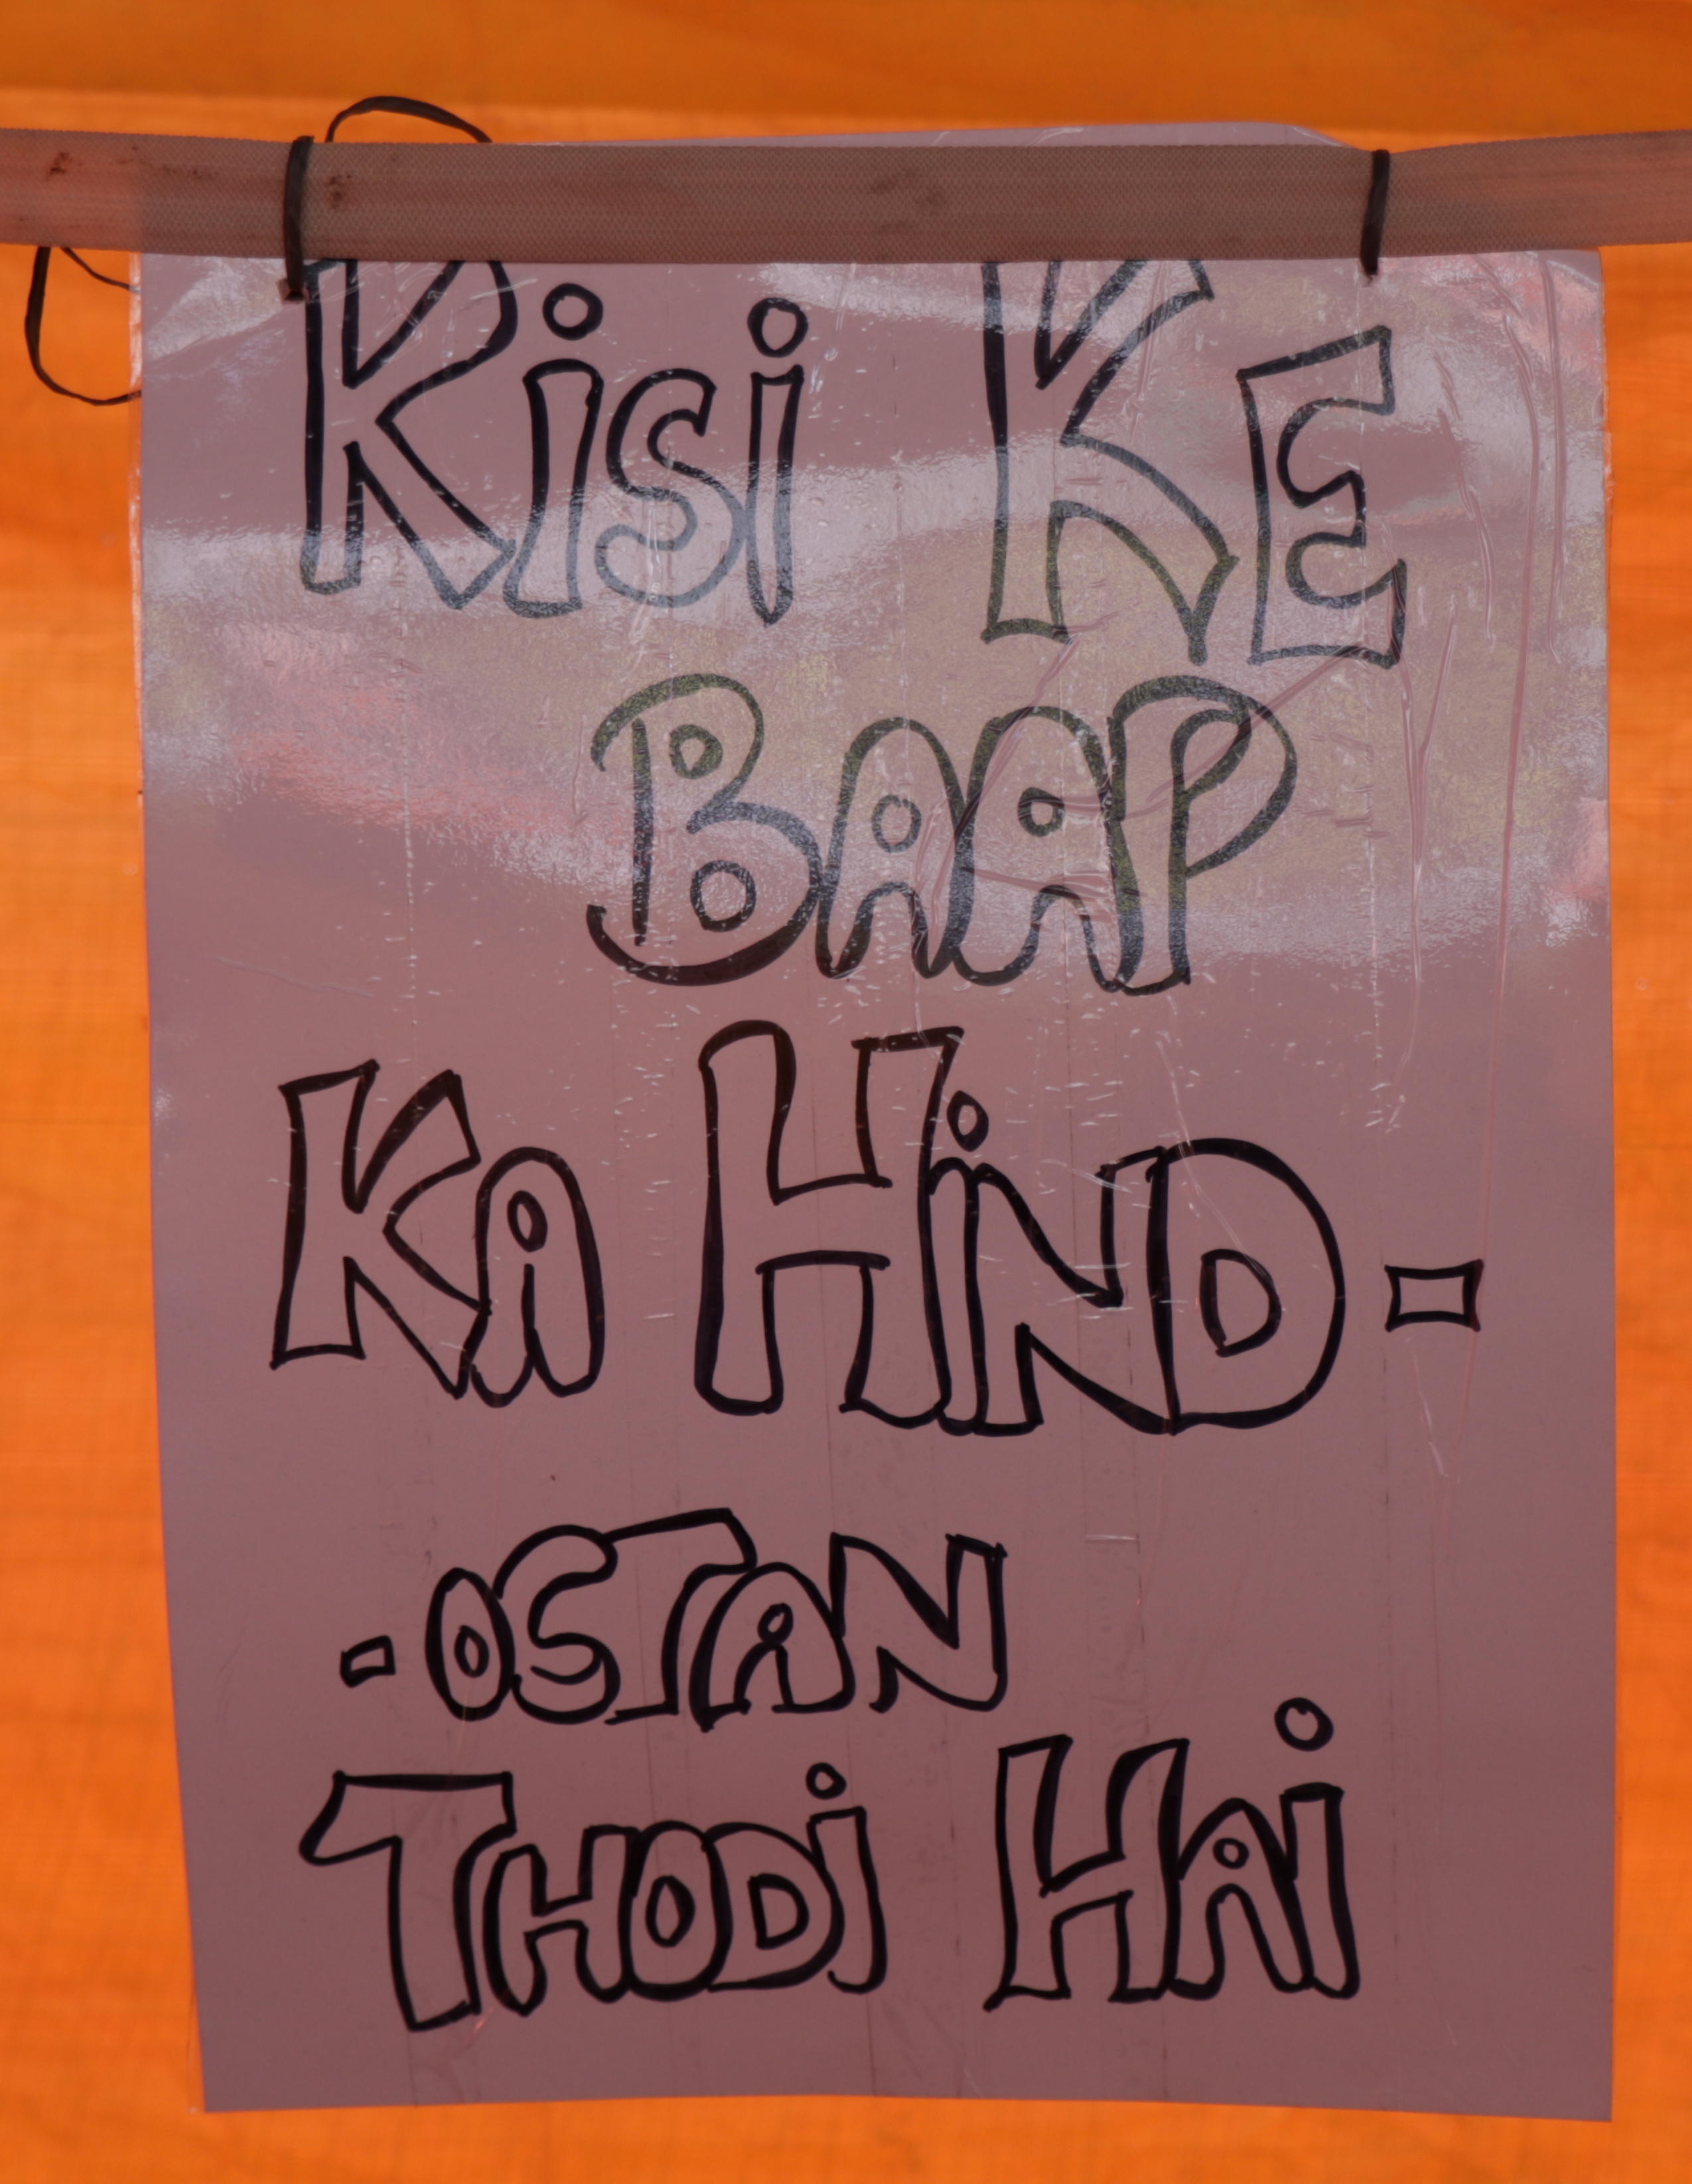 KiSi KE
BAAP
KA HiND-
-OSTAN
THODi HAi